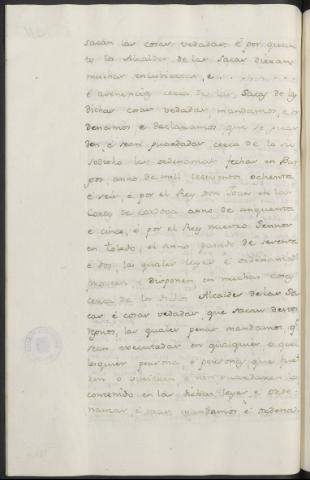 sacan las cosas vedadas, é por quan
to los Alcaldes de las sacas dieron
muchas encubiertas, e . . . . . . . .
é avenencias cerca de las sacas de las
dichas cosas vedadas, mandamos, e or
denamos, e declaramos, que se guar
den, é sean guardadas cerca de lo su
sodicho las ordenanzas fechas en Bur
gos, anno de mill trescientos ochenta
e seis, é por el Rey Don Juan en las
Cortes de Cordova anno de cinquenta
e cinco, é por el Rey nuestro Sennor
en Toledo, el anno pasado de setenta
é dos, las quales leyes é ordenanzas
ponen e disponen en muchas cosas
cerca de los dichos Alcaldes de las Sa
cas é cosas vedadas, que sacan destos
Regnos, las quales penas mandamos qe
sean executadas en qualquier o qua
lesquier persona o personas, que fue
ren o vinieren e non guardaren lo
contenido en las dichas leyes, e orde
nanzas, é mas mandamos, é ordena